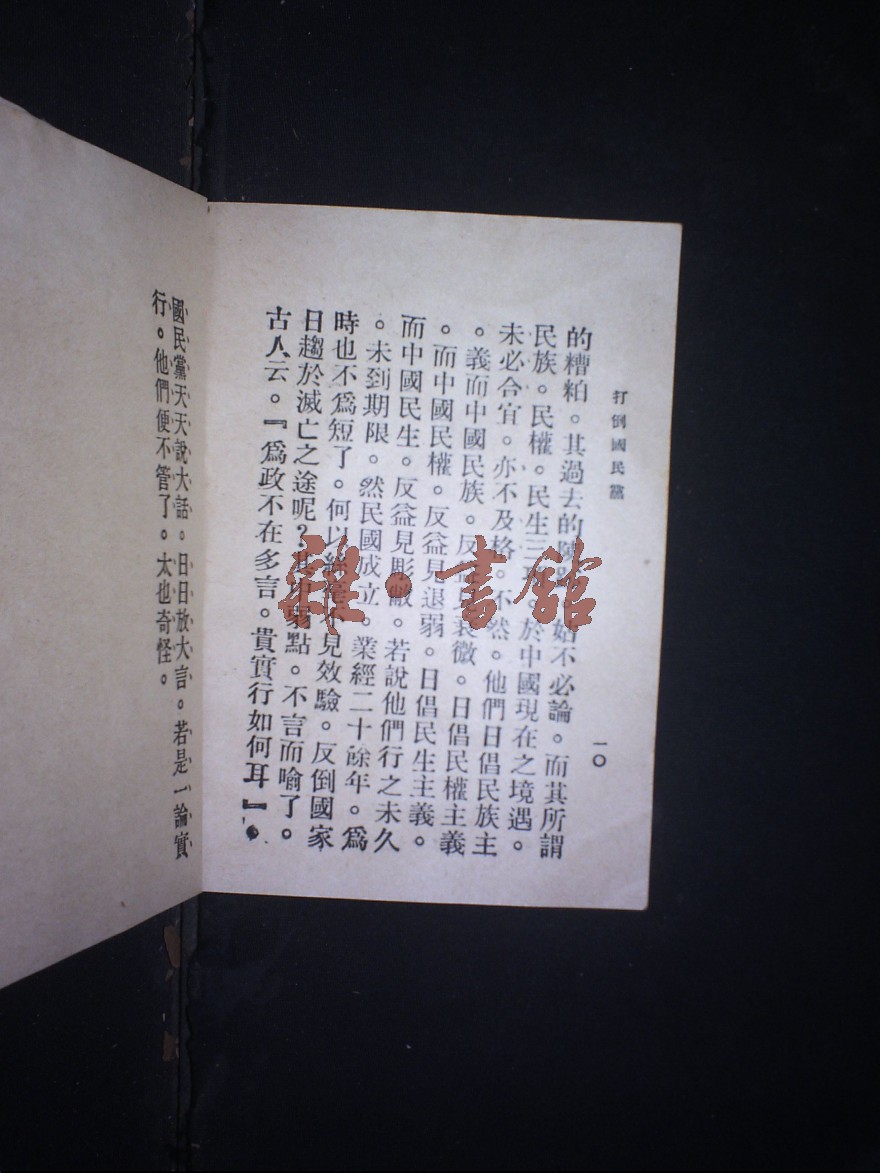 打倒國民黨
一〇
的糟粕。其過去的陳跡。姑不必論。而其所謂
民族。民權。民生三項。於中國現在之境遇。
未必合宜。亦不及格。不然。他們日倡民族主
。義而中國民族。反益見衰微。日倡民權主義
。而中國民權。反益見退弱。日倡民生主義。
而中國民生。反益見彫敝。若說他們行之未久
。未到期限。然民國成立。業經二十餘年。爲
時也不爲短了。何以絲毫不見效驗。反倒國家
日趨於滅亡之途呢?其中弱點。不言而喻了。
古人云。『爲政不在多言。貴實行如何耳』。
國民黨天天說大話。日日放大言。若是一論實
行。他們便不管了。太也奇怪。
雜·書館